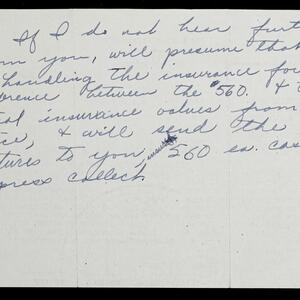 If I do not hear furt
om you, will presume that
handling the insurance fo
erence between the $560. &
al insurance values from
ce, & will send the
tures to you, insured 560 ea. cas
press collect